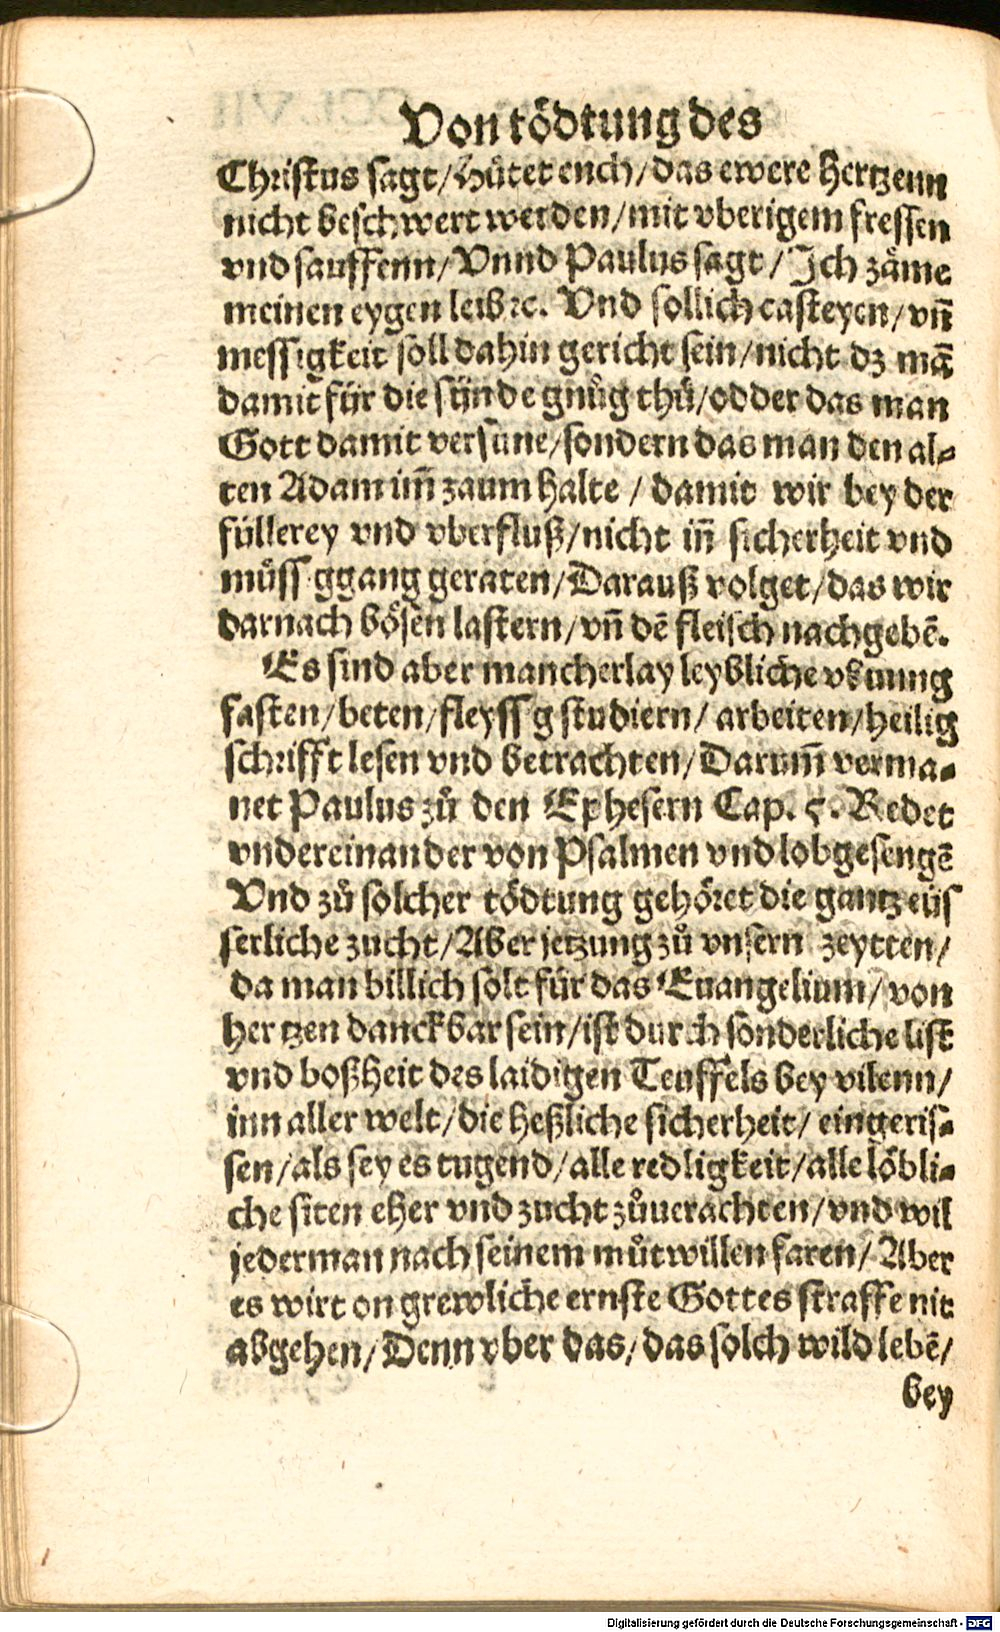 Von tödtung des
Christus sagt/Hütet euch/das ewere hertzenn
nicht beschwert werden/mit vberigem fressen
vnd sauffenn/Vnnd Paulus sagt/Ich zåme
meinen eygen leib ꝛc. Vnd sollich casteyen/vn̄
messigkeit soll dahin gericht sein/nicht dz mā
damit für die sünde gnůg thů/odder das man
Gott damit versüne/sondern das man den al⸗
ten Adam im̄ zaum halte/damit wir bey der
füllerey vnd vberfluß/nicht in̄ sicherheit vnd
můss ggang geraten/Darauß volget/das wir
darnach bösen lastern/vn̄ dē fleisch nachgebē.
Es sind aber mancherlay leybliche vbunng
fasten/beten/fleyss g studiern/arbeiten/heilig
schrifft lesen vnd betrachten/Darum̄ verma⸗
net Paulus zů den Ephesern Cap. 5. Redet
vndereinander von Psalmen vnd lobgesengē
Vnd zů solcher tödtung gehöret die gantz eüs
serliche zucht/Aber jetzung zů vnsern zeytten/
da man billich solt für das Euangelium/von
hertzen danckbar sein/ist durch sonderliche list
vnd boßheit des laidigen Teuffels bey vilenn/
inn aller welt/die heßliche sicherheit/eingeris⸗
sen/als sey es tugend/alle redligkeit/alle löbli⸗
che siten eher vnd zucht zůuerachten/vnd wil
jederman nach seinem můtwillen faren/Aber
es wirt on grewliche ernste Gottes straffe nit
abgehen/Denn vber das/das solch wild lebē/
bey
Digitalisierung gefördert durch die Deutsche Forschungsgemeinschaft - DFG